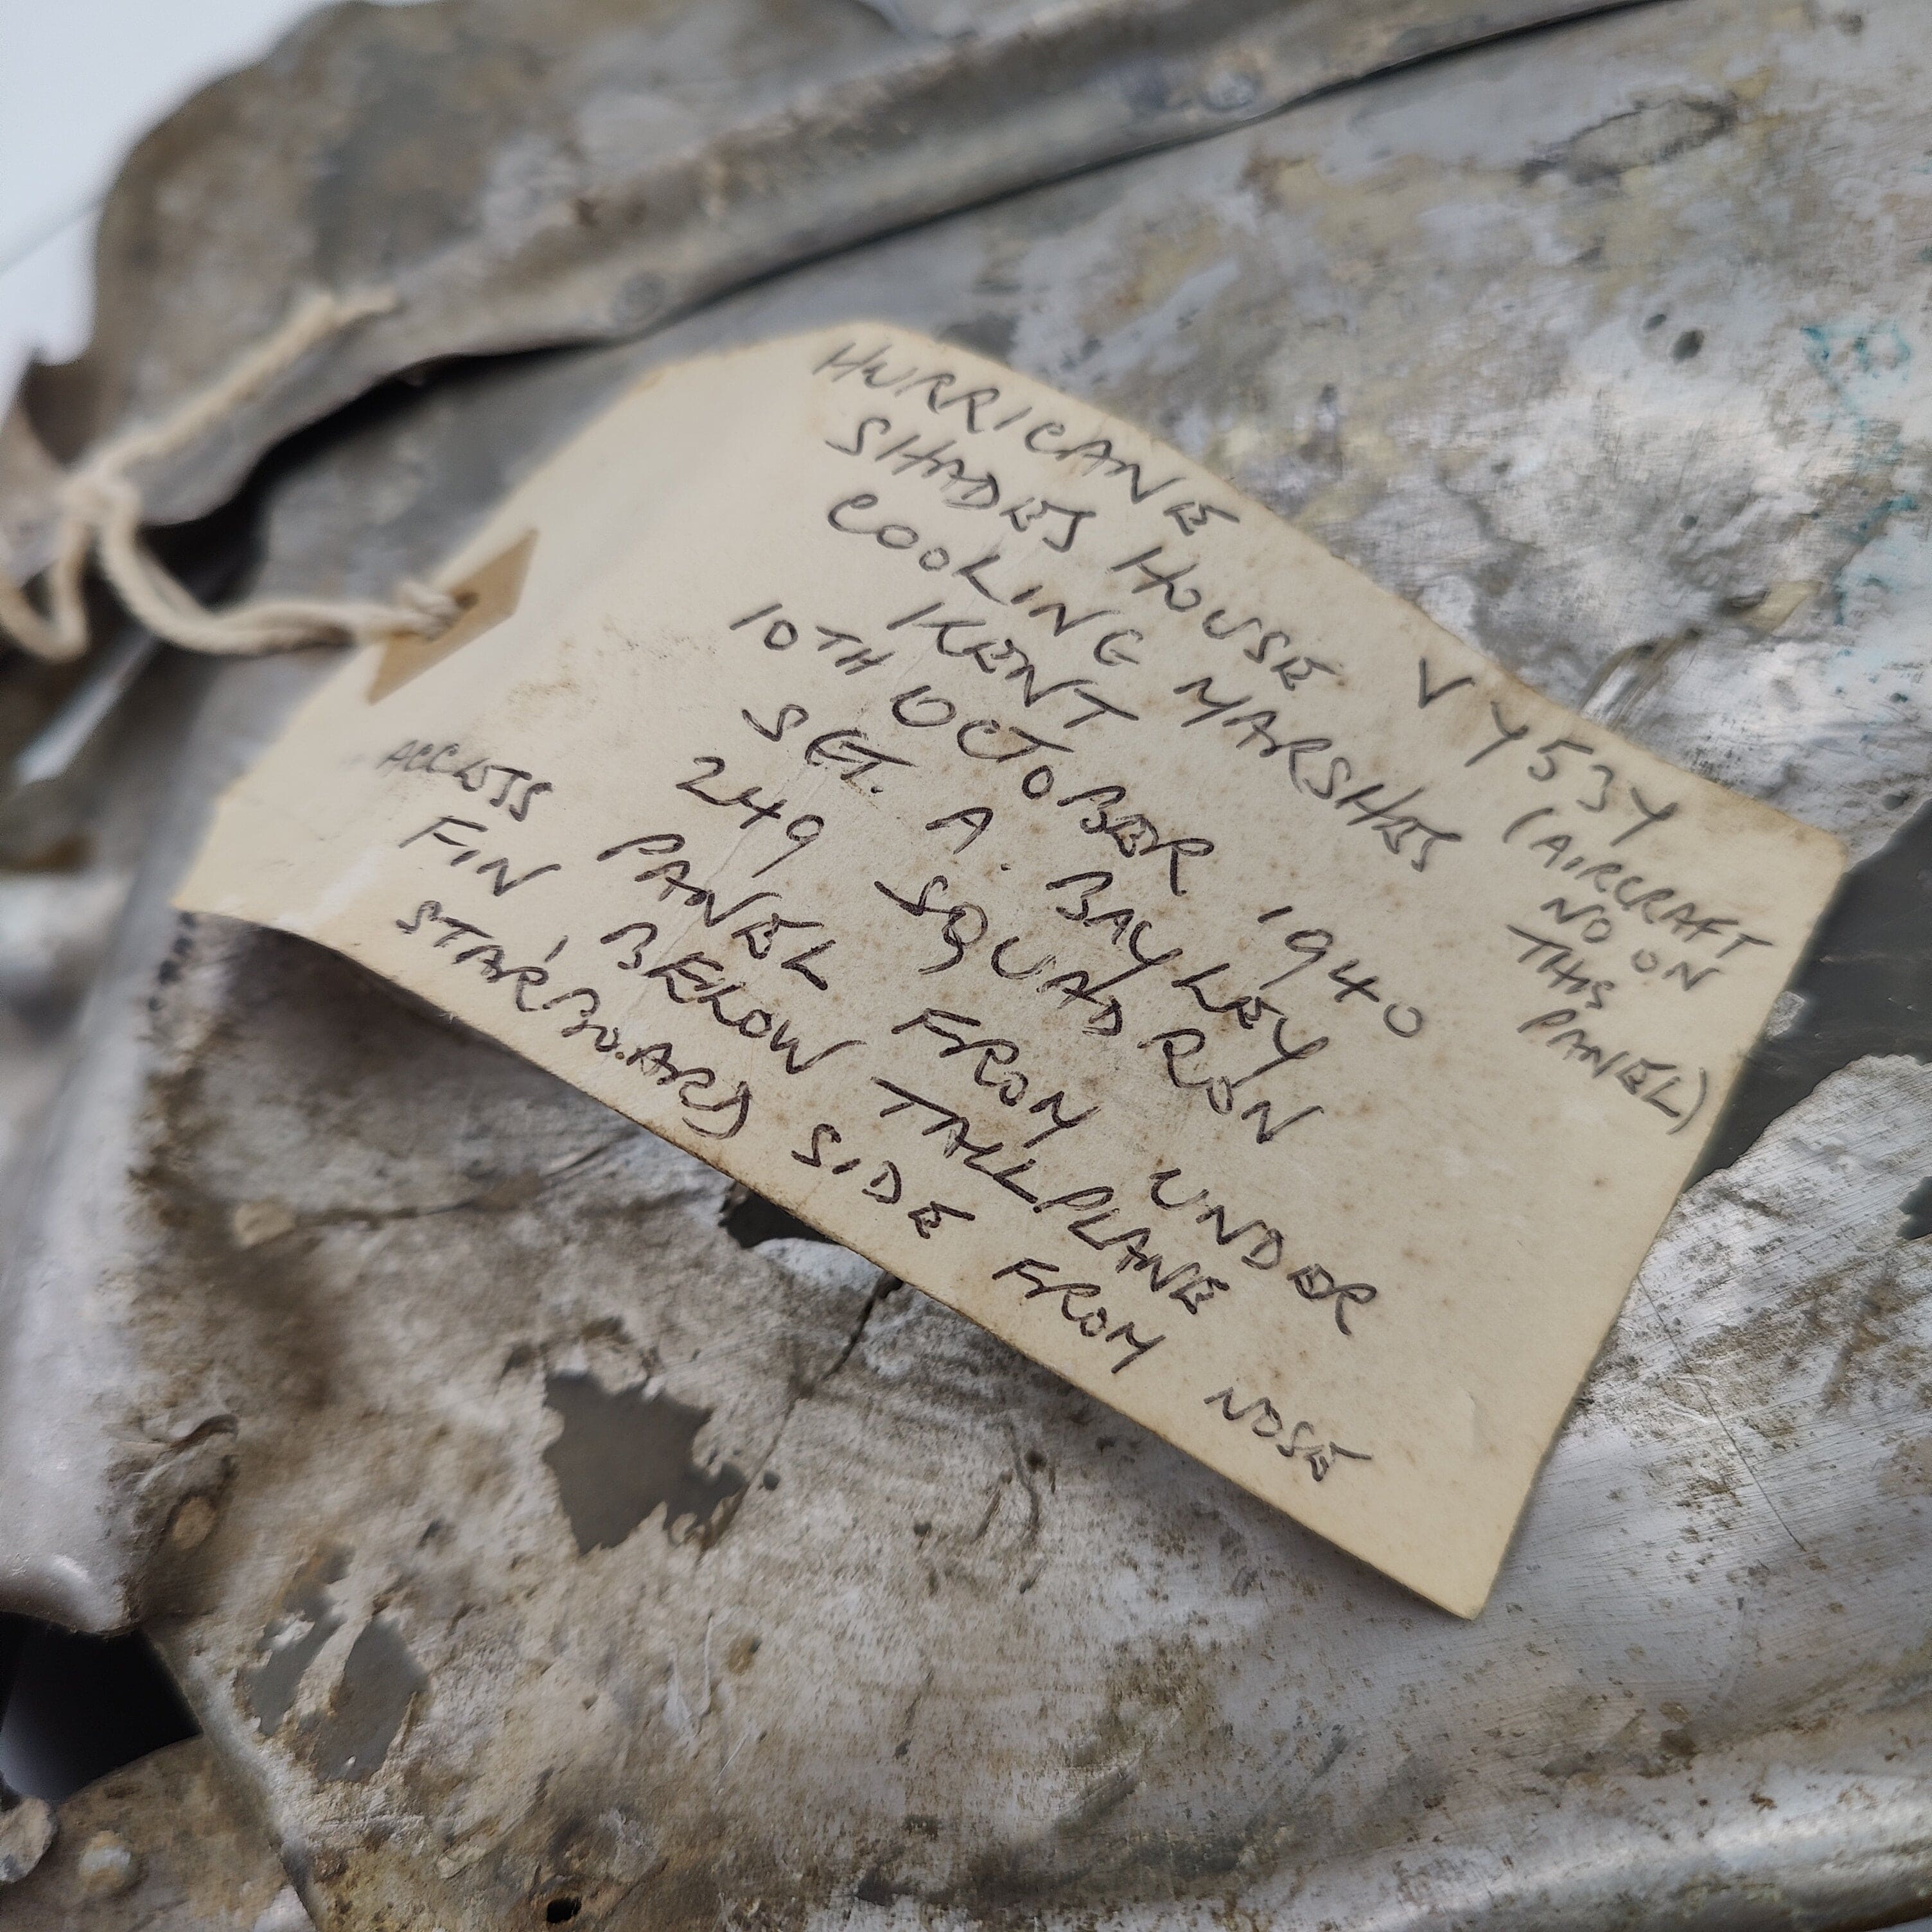 HURRICANE V7537
SHADES HOUSE (AIRCRAFT
COOLING MARSHES NO ON
KENT THIS
10TH OCTOBER 1940 PANEL)
SGT. A. BAYLEY
249 SQUADRON
ACCESS PANEL FROM UNDER
FIN BELOW TAILPLANE
STARBOARD SIDE FROM NOSE